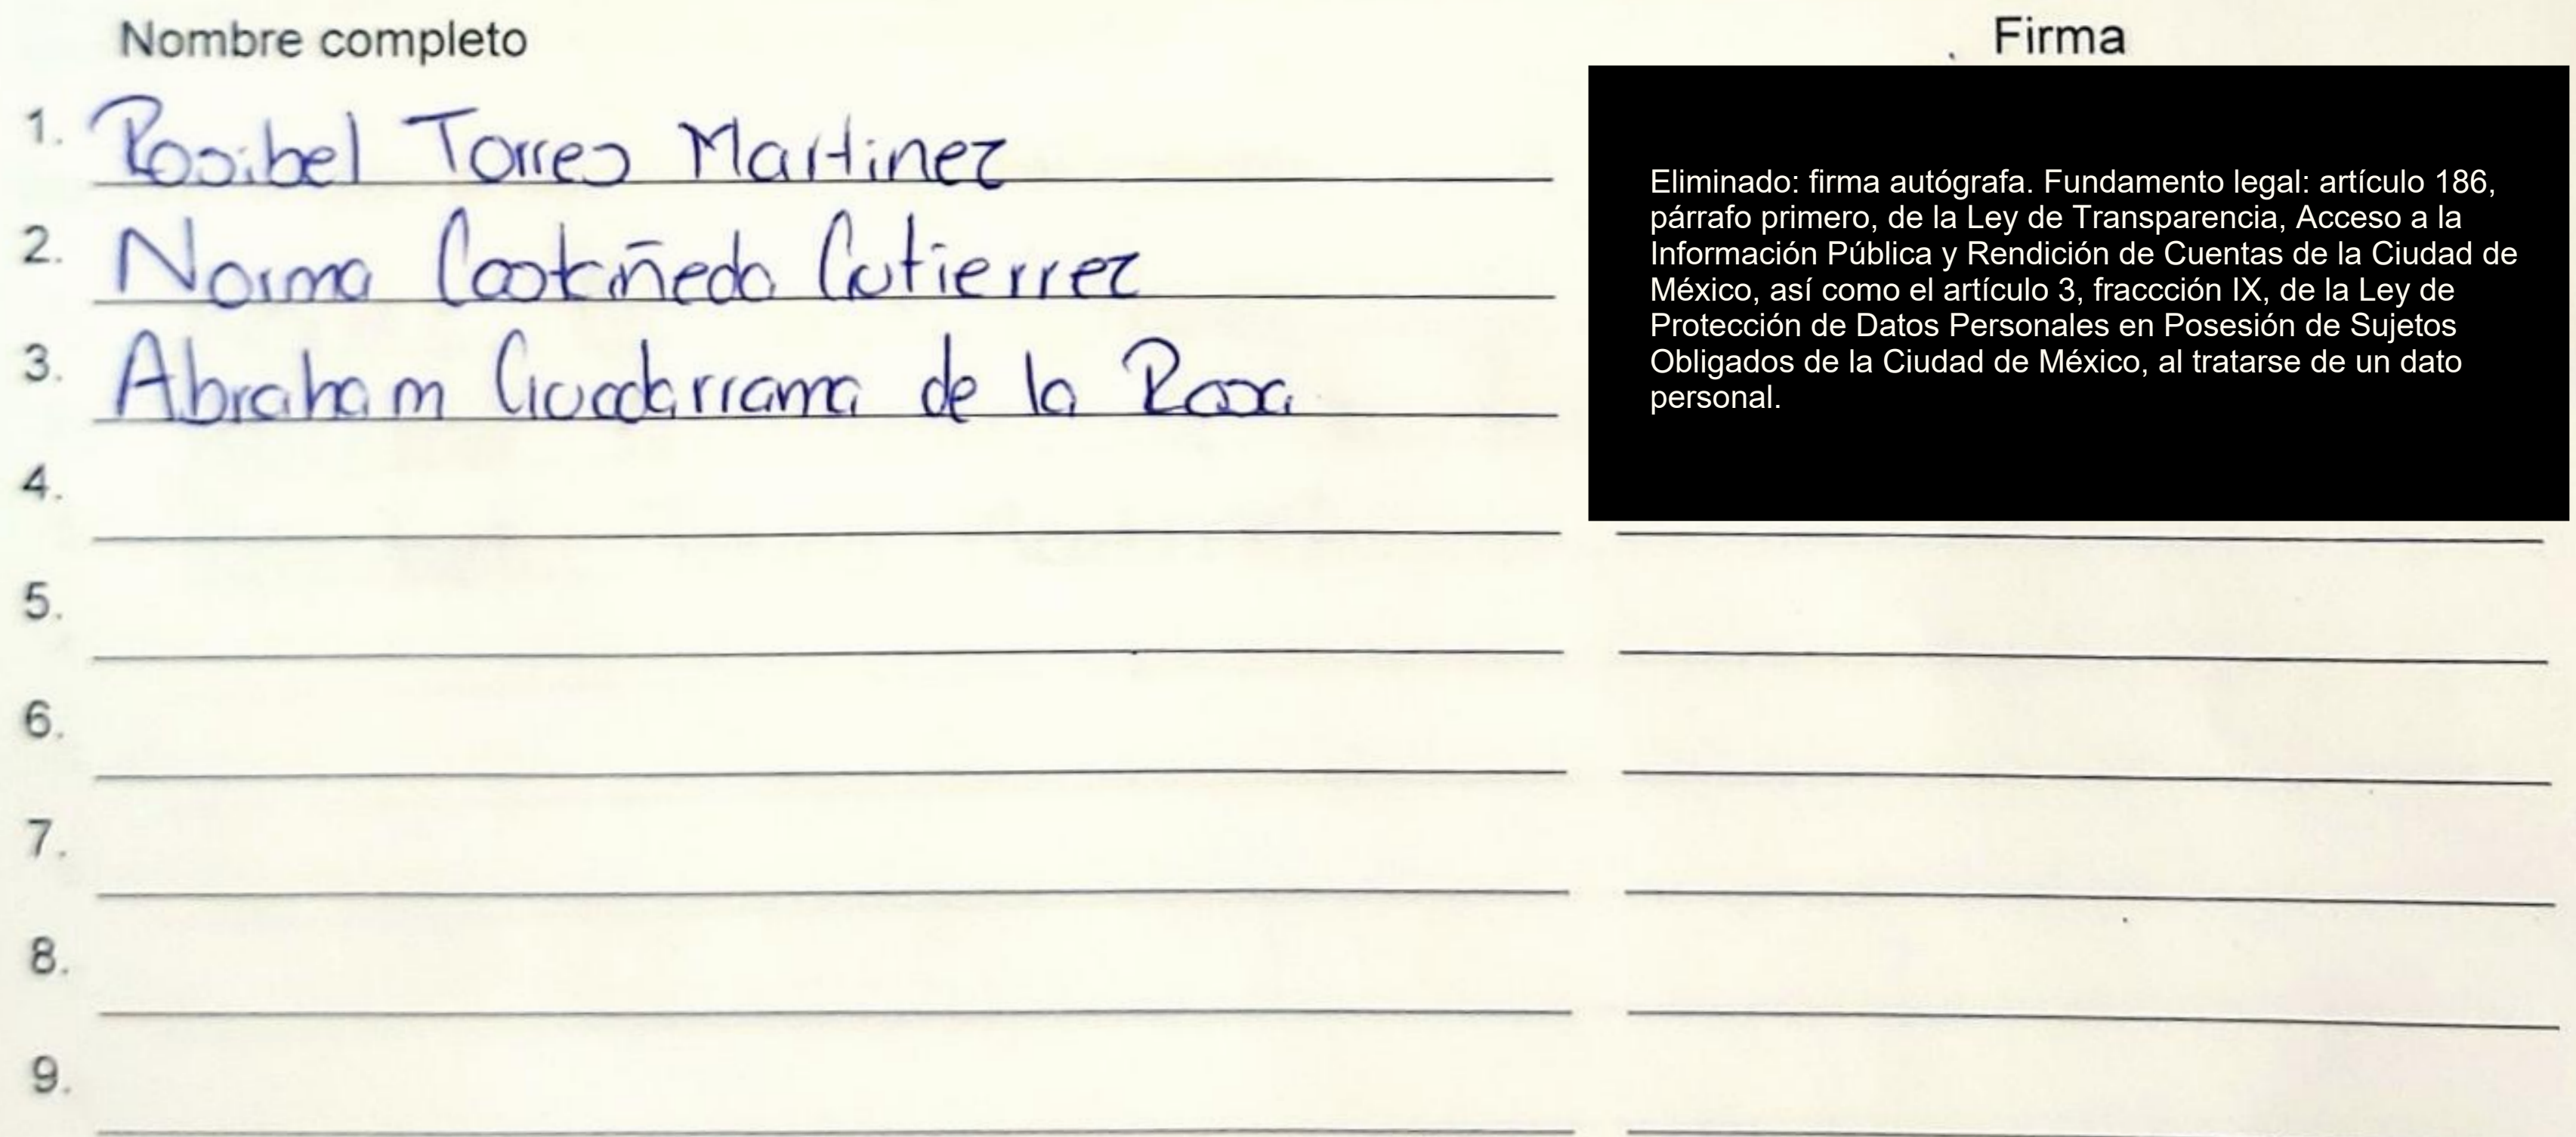 Nombre completo
Firma
1. Rosibel Torres Martinez
2. Norma Castañeda Gutierrez
3. Abraham Guadarrama de la Rosa
4.
5.
6.
7.
8.
9.
Eliminado: firma autógrafa. Fundamento legal: artículo 186,
párrafo primero, de la Ley de Transparencia, Acceso a la
Información Pública y Rendición de Cuentas de la Ciudad de
México, así como el artículo 3, fraccción IX, de la Ley de
Protección de Datos Personales en Posesión de Sujetos
Obligados de la Ciudad de México, al tratarse de un dato
personal.